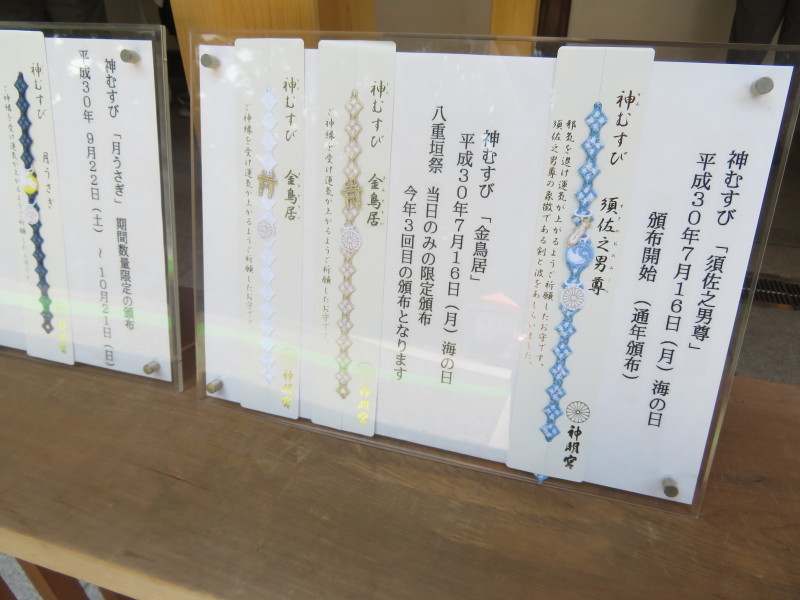 神むすび 「須佐之男尊」
平成３０年７月１６日（月）海の日
頒布開始 （通年頒布）
神むすび
須佐之男尊
邪気を退け運気が上がるようご祈願したお守です。
須佐之男尊の象徴である剣と波をあしらいました。
神明宮
神むすび 「金鳥居」
平成３０年７月１６日（月）海の日
八重垣祭 当日のみの限定頒布
今年３回目の頒布となります
神むすび
金鳥居
ご神縁を受け運気が上がるようご祈願したお守です。
神明宮
神むすび
金鳥居
ご神縁を受け運気が上がるようご祈願したお守です。
神明宮
神むすび 「月うさぎ」 期間数量限定の頒布
平成３０年 ９月２２日（土） ～ １０月２１日（日）
神むすび
月うさぎ
ご神縁を受け運気が上がるようご祈願したお守です。
神明宮